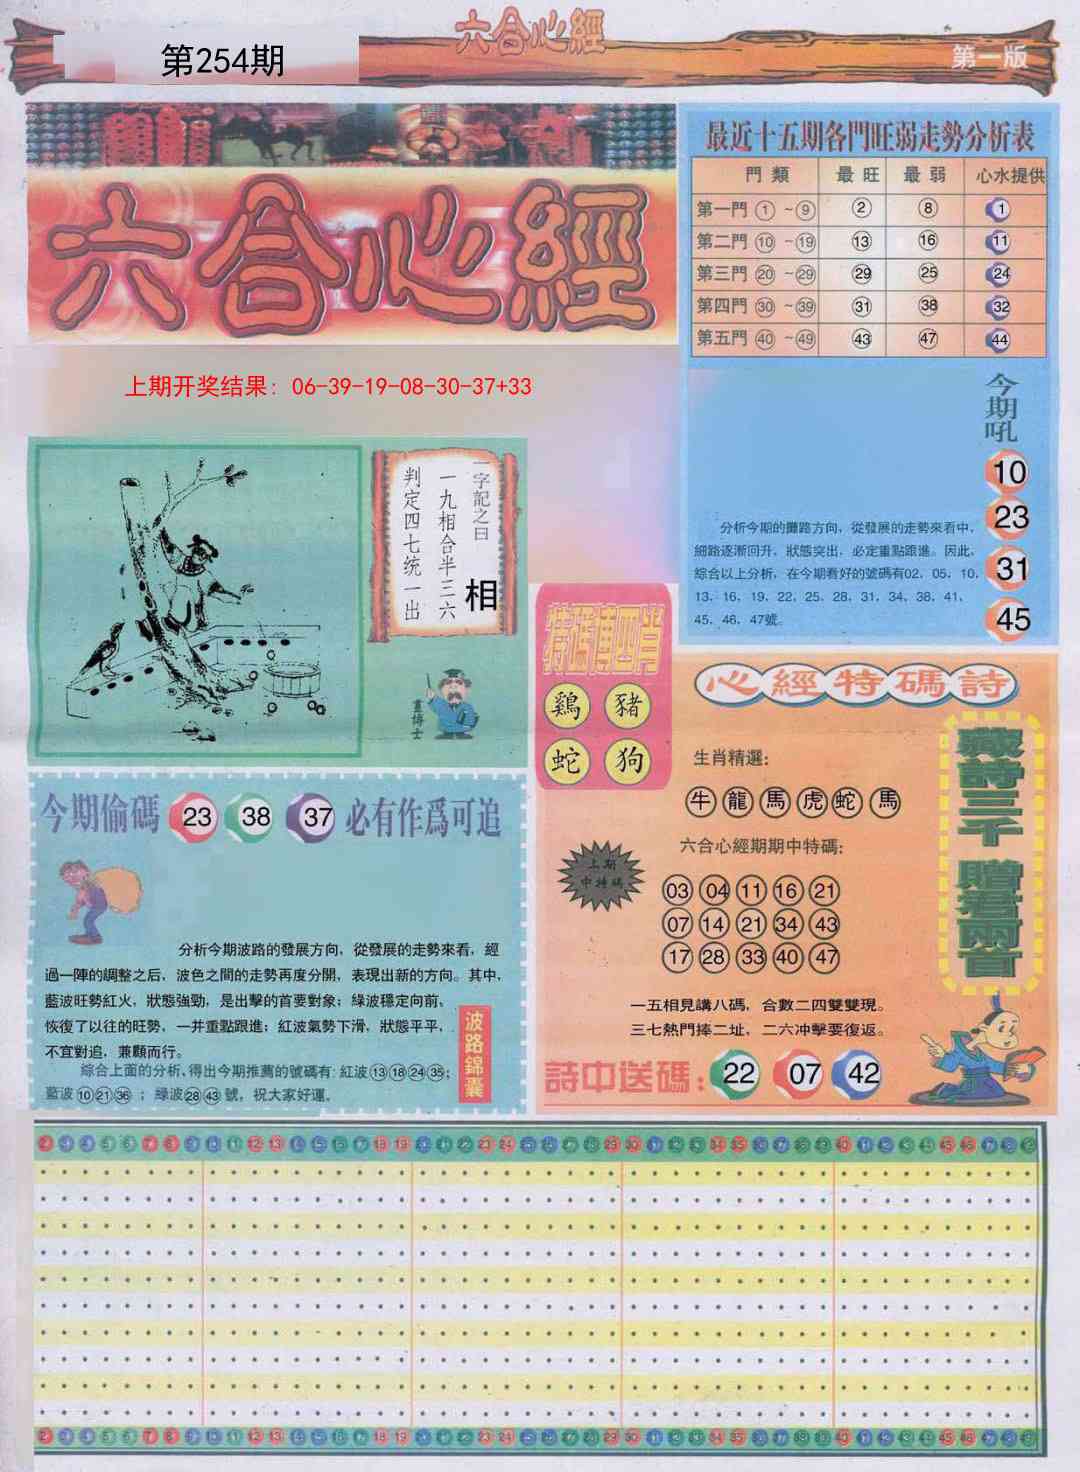 六合心經
第254期
第一版
六合心經
最近十五期各門旺弱走勢分析表
門類 最旺 最弱 心水提供
第一門 ①~⑨ ② ⑧ 1
第二門 ⑩~⑲ ⑬ ⑯ 11
第三門 ⑳~㉙ ㉙ ㉕ 24
第四門 ㉚~㊴ ㉛ ㊳ 32
第五門 ㊵~㊾ ㊸ ㊼ 44
上期开奖结果: 06-39-19-08-30-37+33
今期吼
10
23
31
45
分析今期的攤路方向，從發展的走勢來看中，
細路逐漸回升，狀態突出，必定重點跟進。因此，
綜合以上分析，在今期看好的號碼有02、05、10、
13、16、19、22、25、28、31、34、38、41、
45、46、47號。
一字記之曰
相
一九相合半三六
判定四七统一出
畫博士
特碼博四肖
鷄 豬
蛇 狗
心經特碼詩
生肖精選:
牛 龍 馬 虎 蛇 馬
六合心經期期中特碼:
上期
中特碼
03 04 11 16 21
07 14 21 34 43
17 28 33 40 47
藏詩三千
贈君兩首
一五相見講八碼，合數二四雙雙現。
三七熱門捧二址，二六冲擊要復返。
詩中送碼: 22 07 42
今期偷碼 23 38 37 必有作爲可追
分析今期波路的發展方向，從發展的走勢來看，經
過一陣的調整之后，波色之間的走勢再度分開，表現出新的方向。其中，
藍波旺勢紅火，狀態強勁，是出擊的首要對象；綠波穩定向前，
恢復了以往的旺勢，一并重點跟進；紅波氣勢下滑，狀態平平，
不宜對追，兼顧而行。
綜合上面的分析，得出今期推薦的號碼有: 紅波⑬⑱㉔㉟；
藍波⑩㉑㊱；綠波㉘㊸號，祝大家好運。
波路錦囊